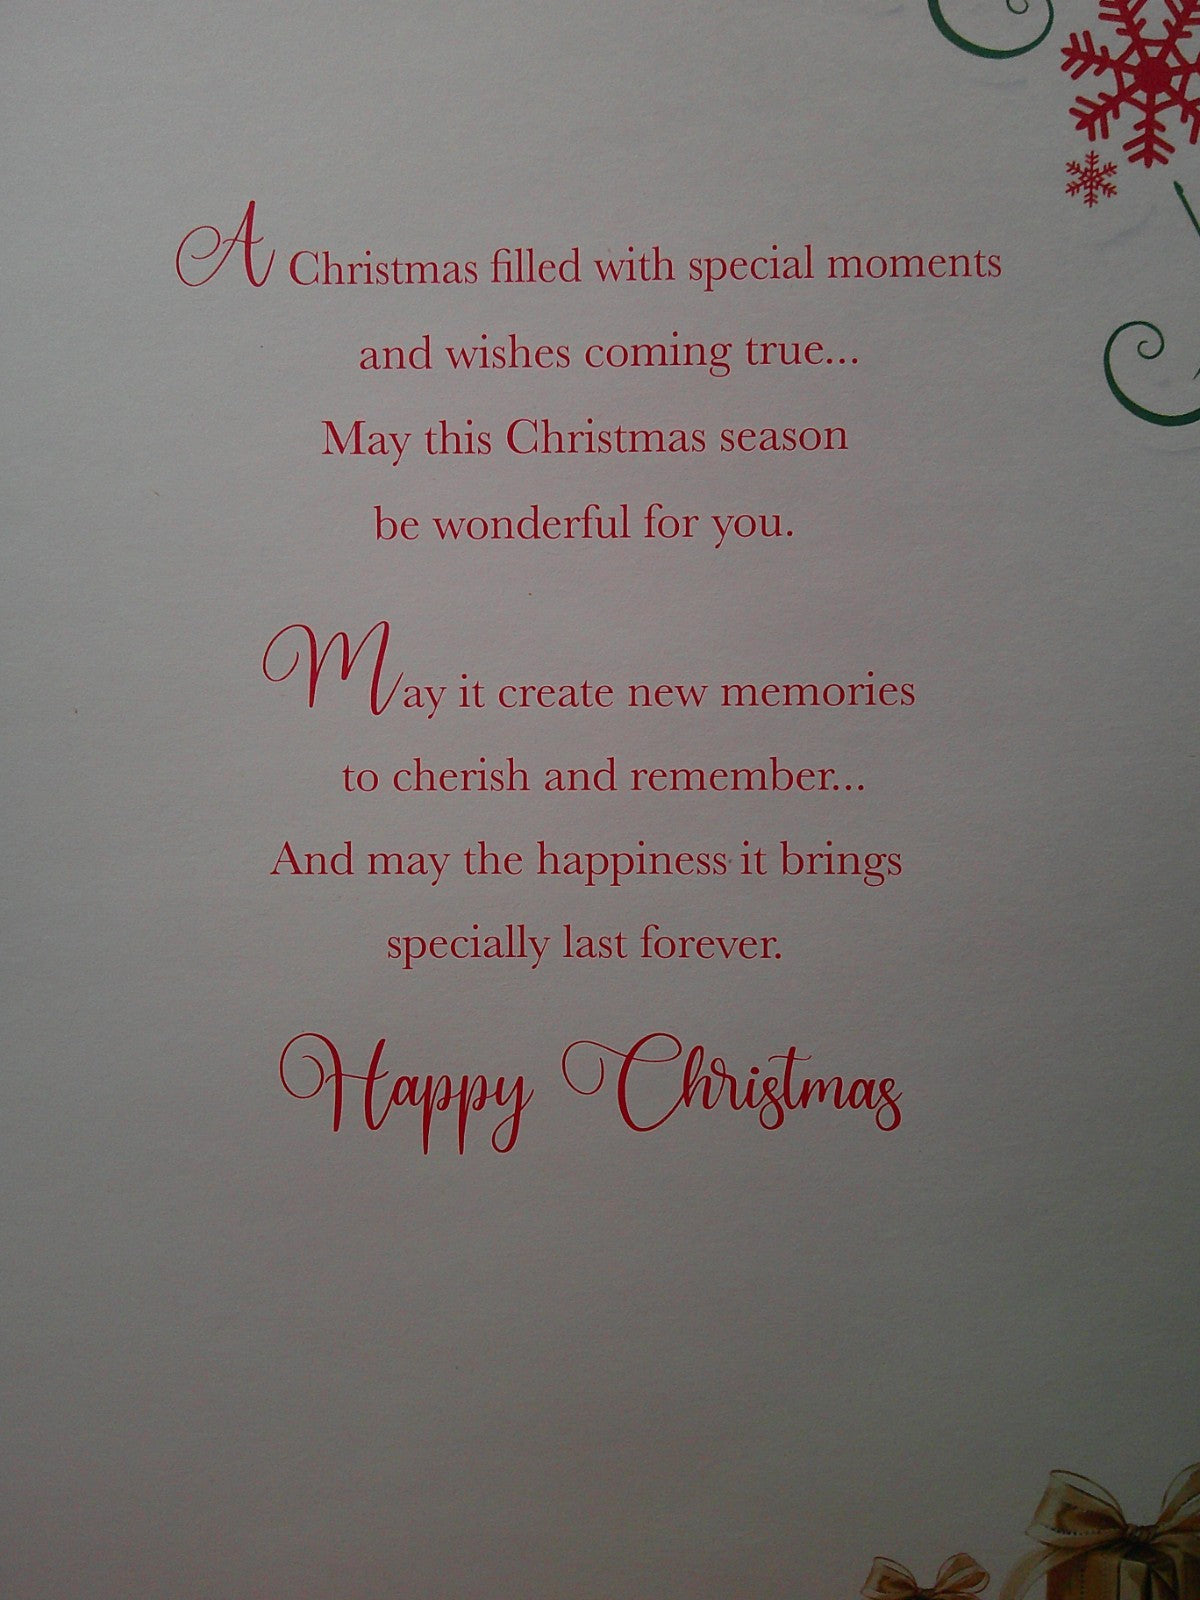 A Christmas filled with special moments
and wishes coming true...
May this Christmas season
be wonderful for you.
May it create new memories
to cherish and remember...
And may the happiness it brings
specially last forever.
Happy Christmas